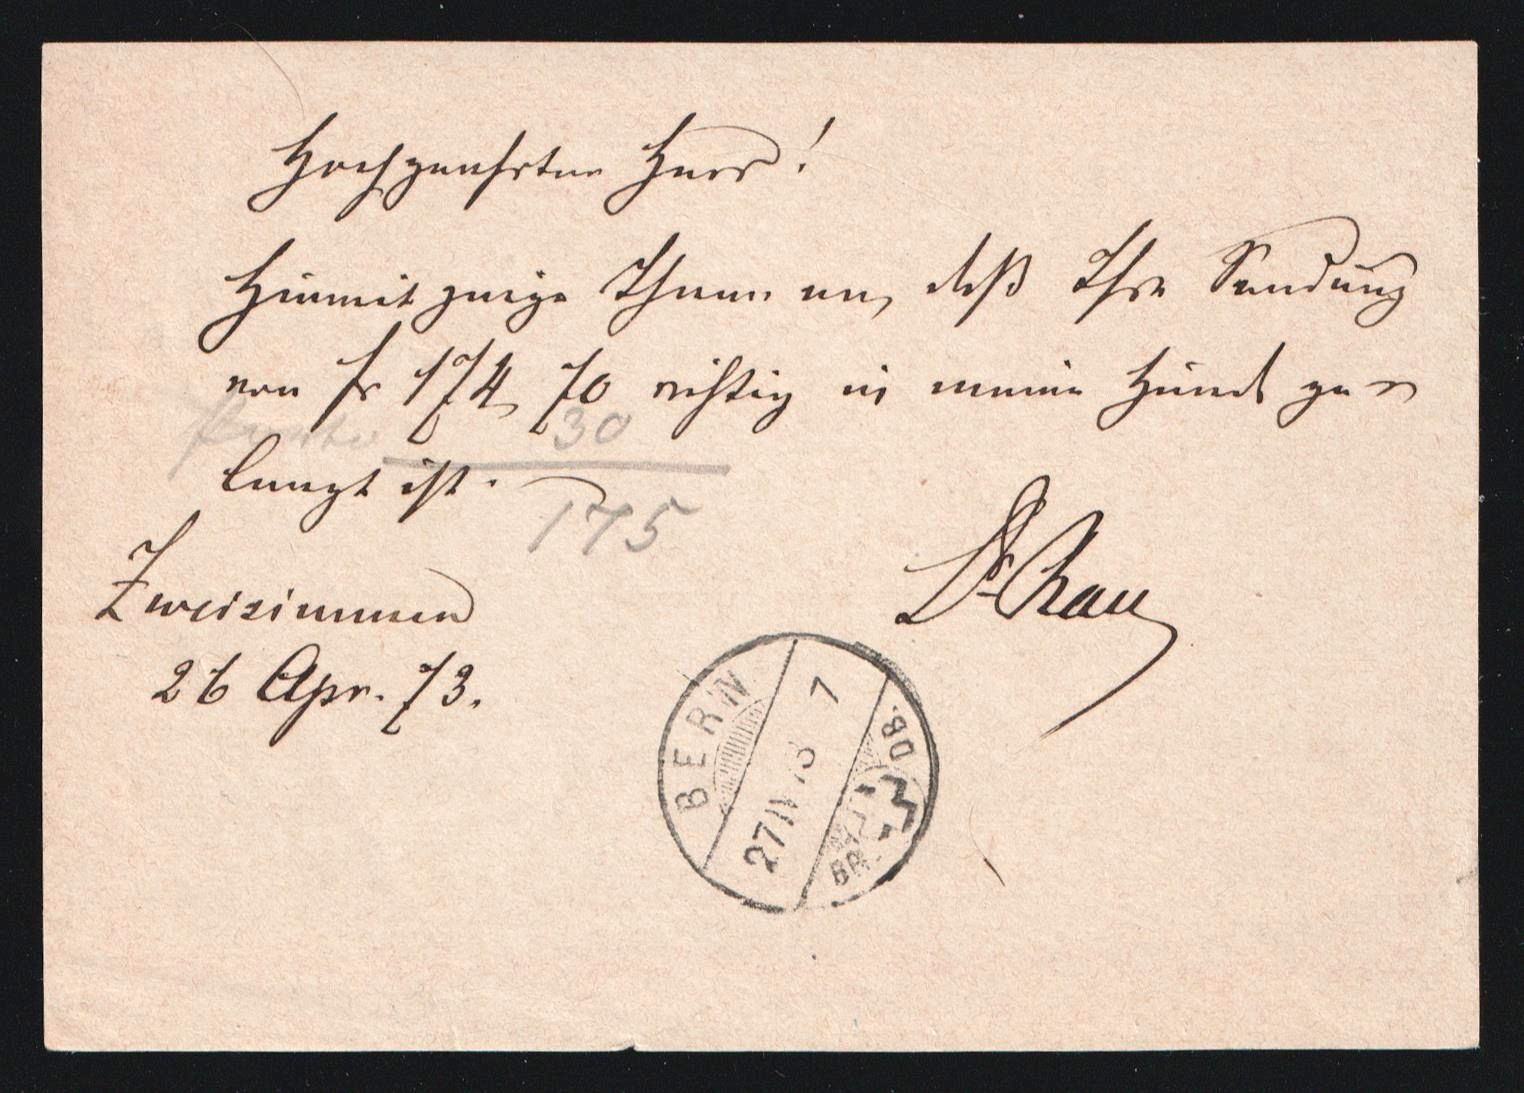 Hochgeehrter Herr!
Hiermit zeige Ihnen an, daß Ihre Sendung
von fr 174, 70 richtig in meine Hände ge=
Porto 30
langt ist.
175
Dr Rau
Zweisimmen
26 Apr. 73.
BERN
27 IV 73 7